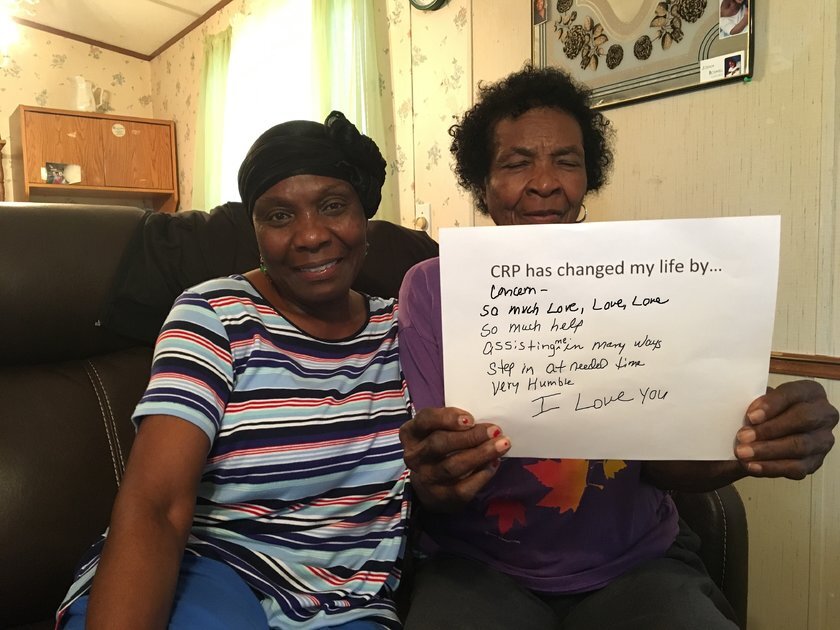 CRP has changed my life by...
Concern -
So much Love, Love, Love
So much help
assisting me in many ways
Step in at needed time
Very Humble
I Love You